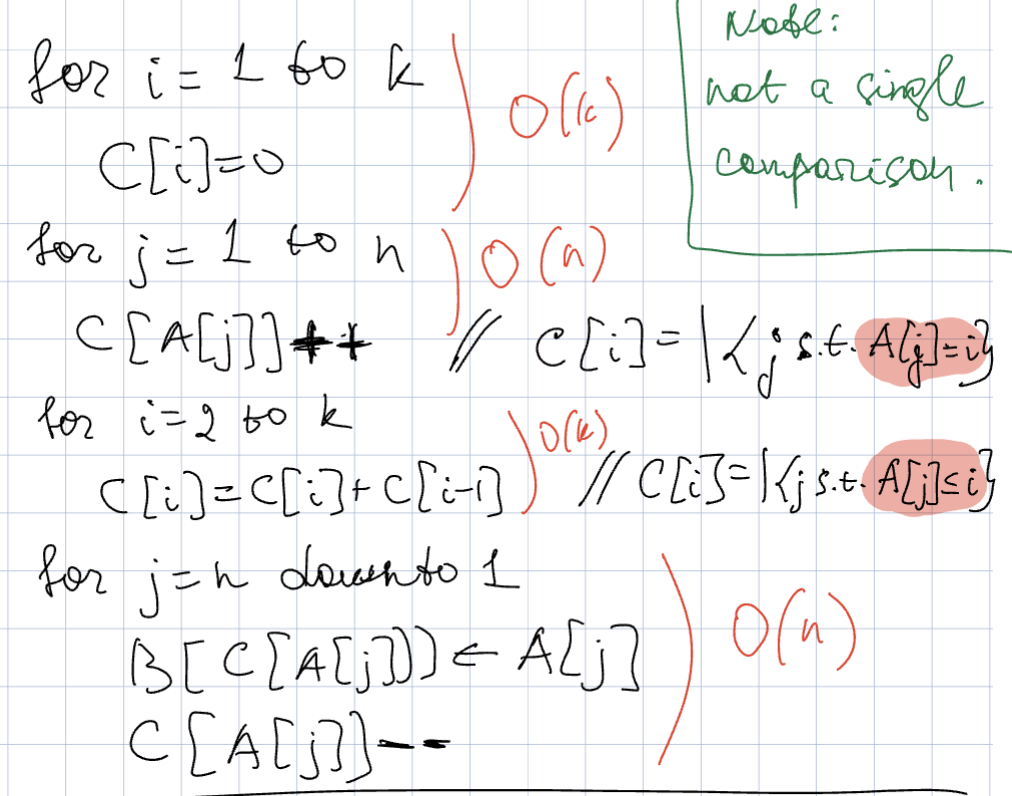 for i = 1 to k
C[i]=0
O(k)
Note:
not a single
comparison.
for j = 1 to n
O(n)
C[A[j]]++ // C[i]=|{j s.t. A[j]=i}
for i=2 to k
C[i]=C[i]+C[i-1]
O(k)
// C[i]=|{j s.t. A[j]≤i}
for j=n downto 1
B[C[A[j]]]← A[j]
C[A[j]]--
O(n)